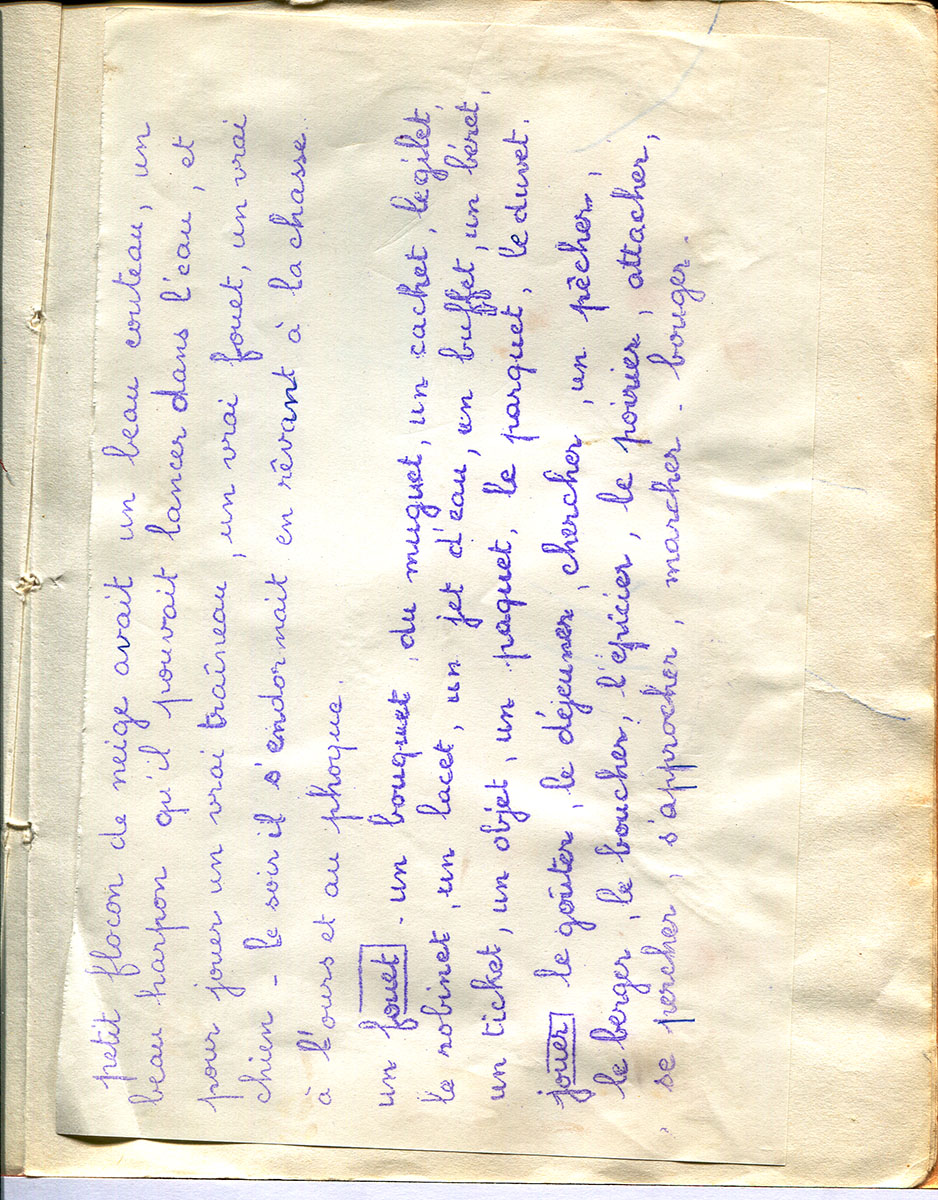 petit flocon de neige avait un beau couteau, un
beau harpon qu'il pouvait lancer dans l'eau, et
pour jouer un vrai traîneau, un vrai fouet, un vrai
chien - le soir il s'endormait en rêvant à la chasse
à l'ours et au phoque.
un fouet. un bouquet, du muguet, un cachet, le gilet,
le robinet, un lacet, un jet d'eau, un buffet, un béret,
un ticket, un objet, un paquet, le parquet, le duvet.
jouer le goûter, le déjeuner, chercher, un pêcher,
le berger, le boucher, l'épicier, le poirier, attacher,
se percher, s'approcher, marcher - bouger.